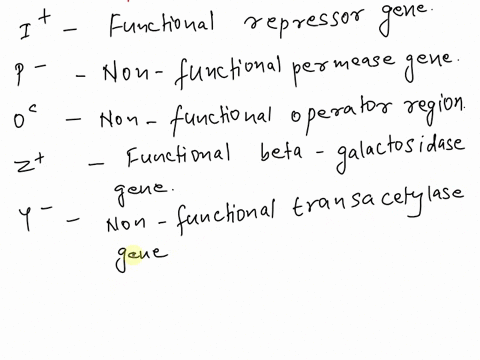 I⁺ - Functional repressor gene.
P⁻ - Non-functional permease gene.
Oᶜ - Non-functional operator region.
Z⁺ - Functional beta-galactosidase
gene.
Y⁻ - Non-functional transacetylase
gene